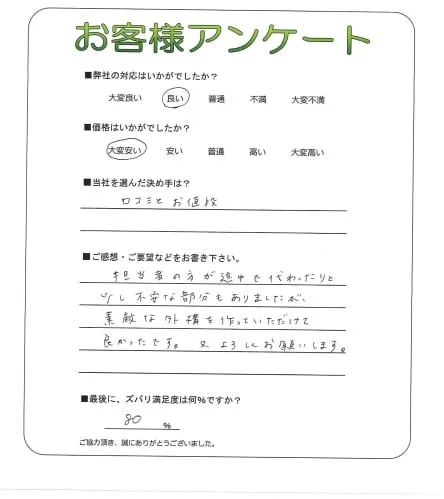 お客様アンケート
■弊社の対応はいかがでしたか?
大変良い 良い 普通 不満 大変不満
■価格はいかがでしたか?
大変安い 安い 普通 高い 大変高い
■当社を選んだ決め手は?
口コミと お値段
■ご感想・ご要望などをお書き下さい。
担当者の方が途中で代わったりと
少し不安な部分もありましたが、
素敵な外構を作っていただけて
良かったです。又よろしくお願いします。
■最後に、ズバリ満足度は何%ですか?
80 %
ご協力頂き、誠にありがとうございました。